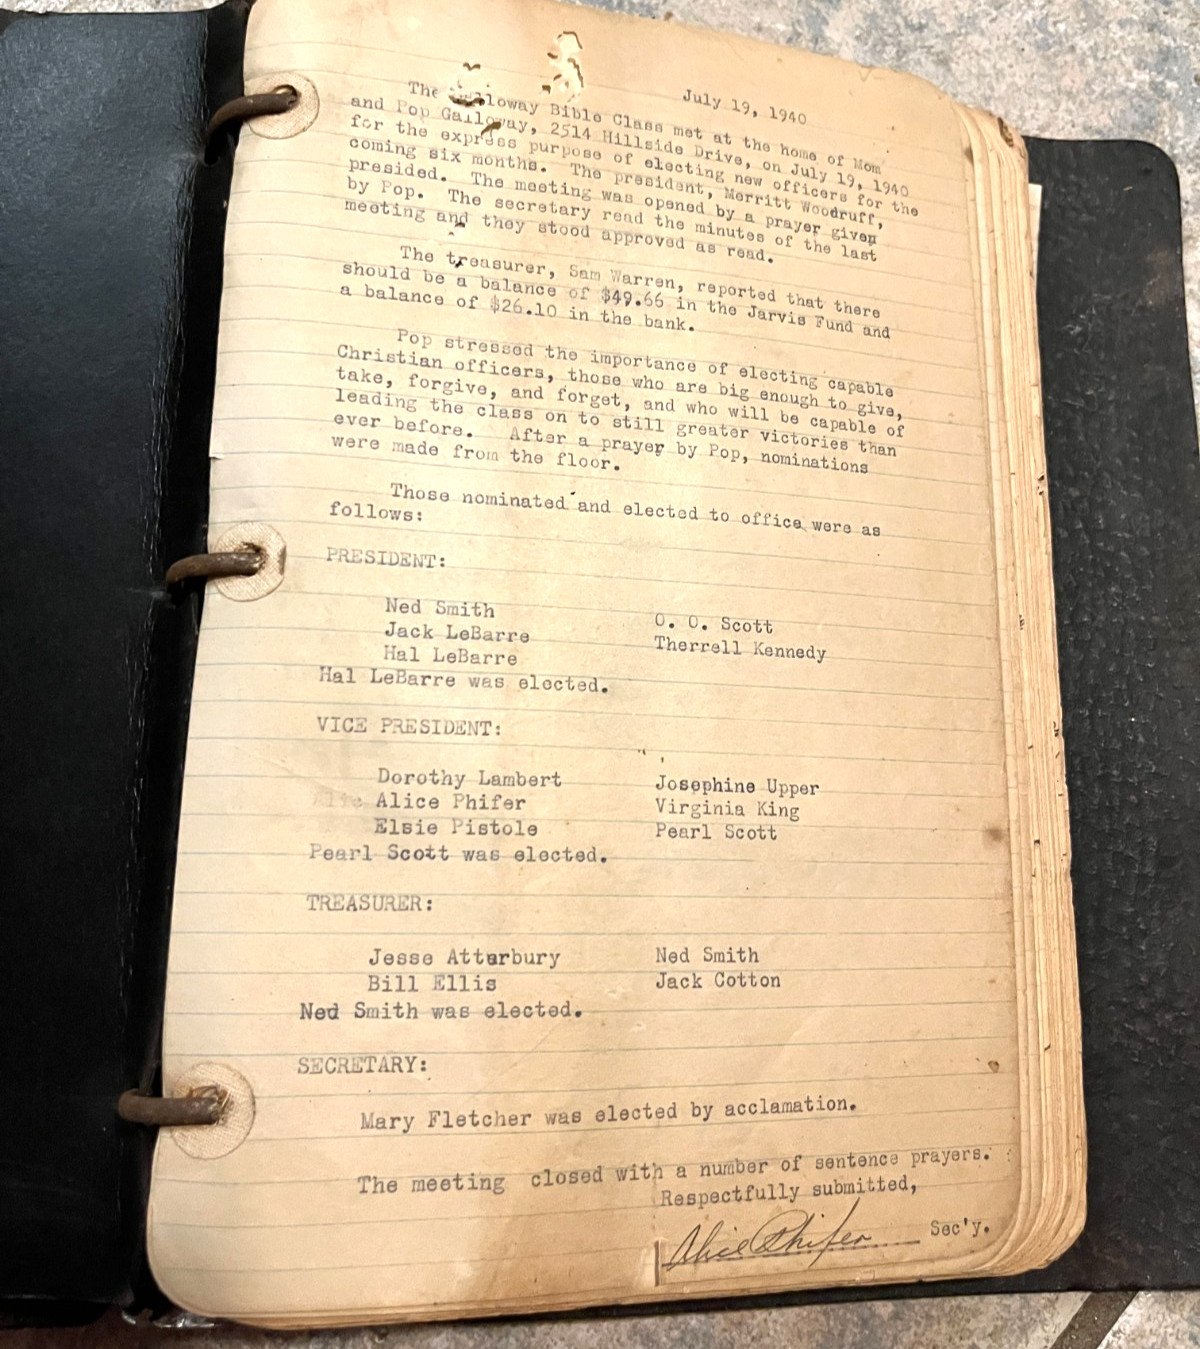 July 19, 1940
The Galloway Bible Class met at the home of Mom
and Pop Galloway, 2514 Hillside Drive, on July 19, 1940
for the express purpose of electing new officers for the
coming six months. The president, Merritt Woodruff,
presided. The meeting was opened by a prayer given
by Pop. The secretary read the minutes of the last
meeting and they stood approved as read.
The treasurer, Sam Warren, reported that there
should be a balance of $49.66 in the Jarvis Fund and
a balance of $26.10 in the bank.
Pop stressed the importance of electing capable
Christian officers, those who are big enough to give,
take, forgive, and forget, and who will be capable of
leading the class on to still greater victories than
ever before. After a prayer by Pop, nominations
were made from the floor.
Those nominated and elected to office were as
follows:
PRESIDENT:
Ned Smith O. O. Scott
Jack LeBarre Therrell Kennedy
Hal LeBarre
Hal LeBarre was elected.
VICE PRESIDENT:
Dorothy Lambert Josephine Upper
Alice Phifer Virginia King
Elsie Pistole Pearl Scott
Pearl Scott was elected.
TREASURER:
Jesse Atterbury Ned Smith
Bill Ellis Jack Cotton
Ned Smith was elected.
SECRETARY:
Mary Fletcher was elected by acclamation.
The meeting closed with a number of sentence prayers.
Respectfully submitted,
Alice Phifer Sec'y.